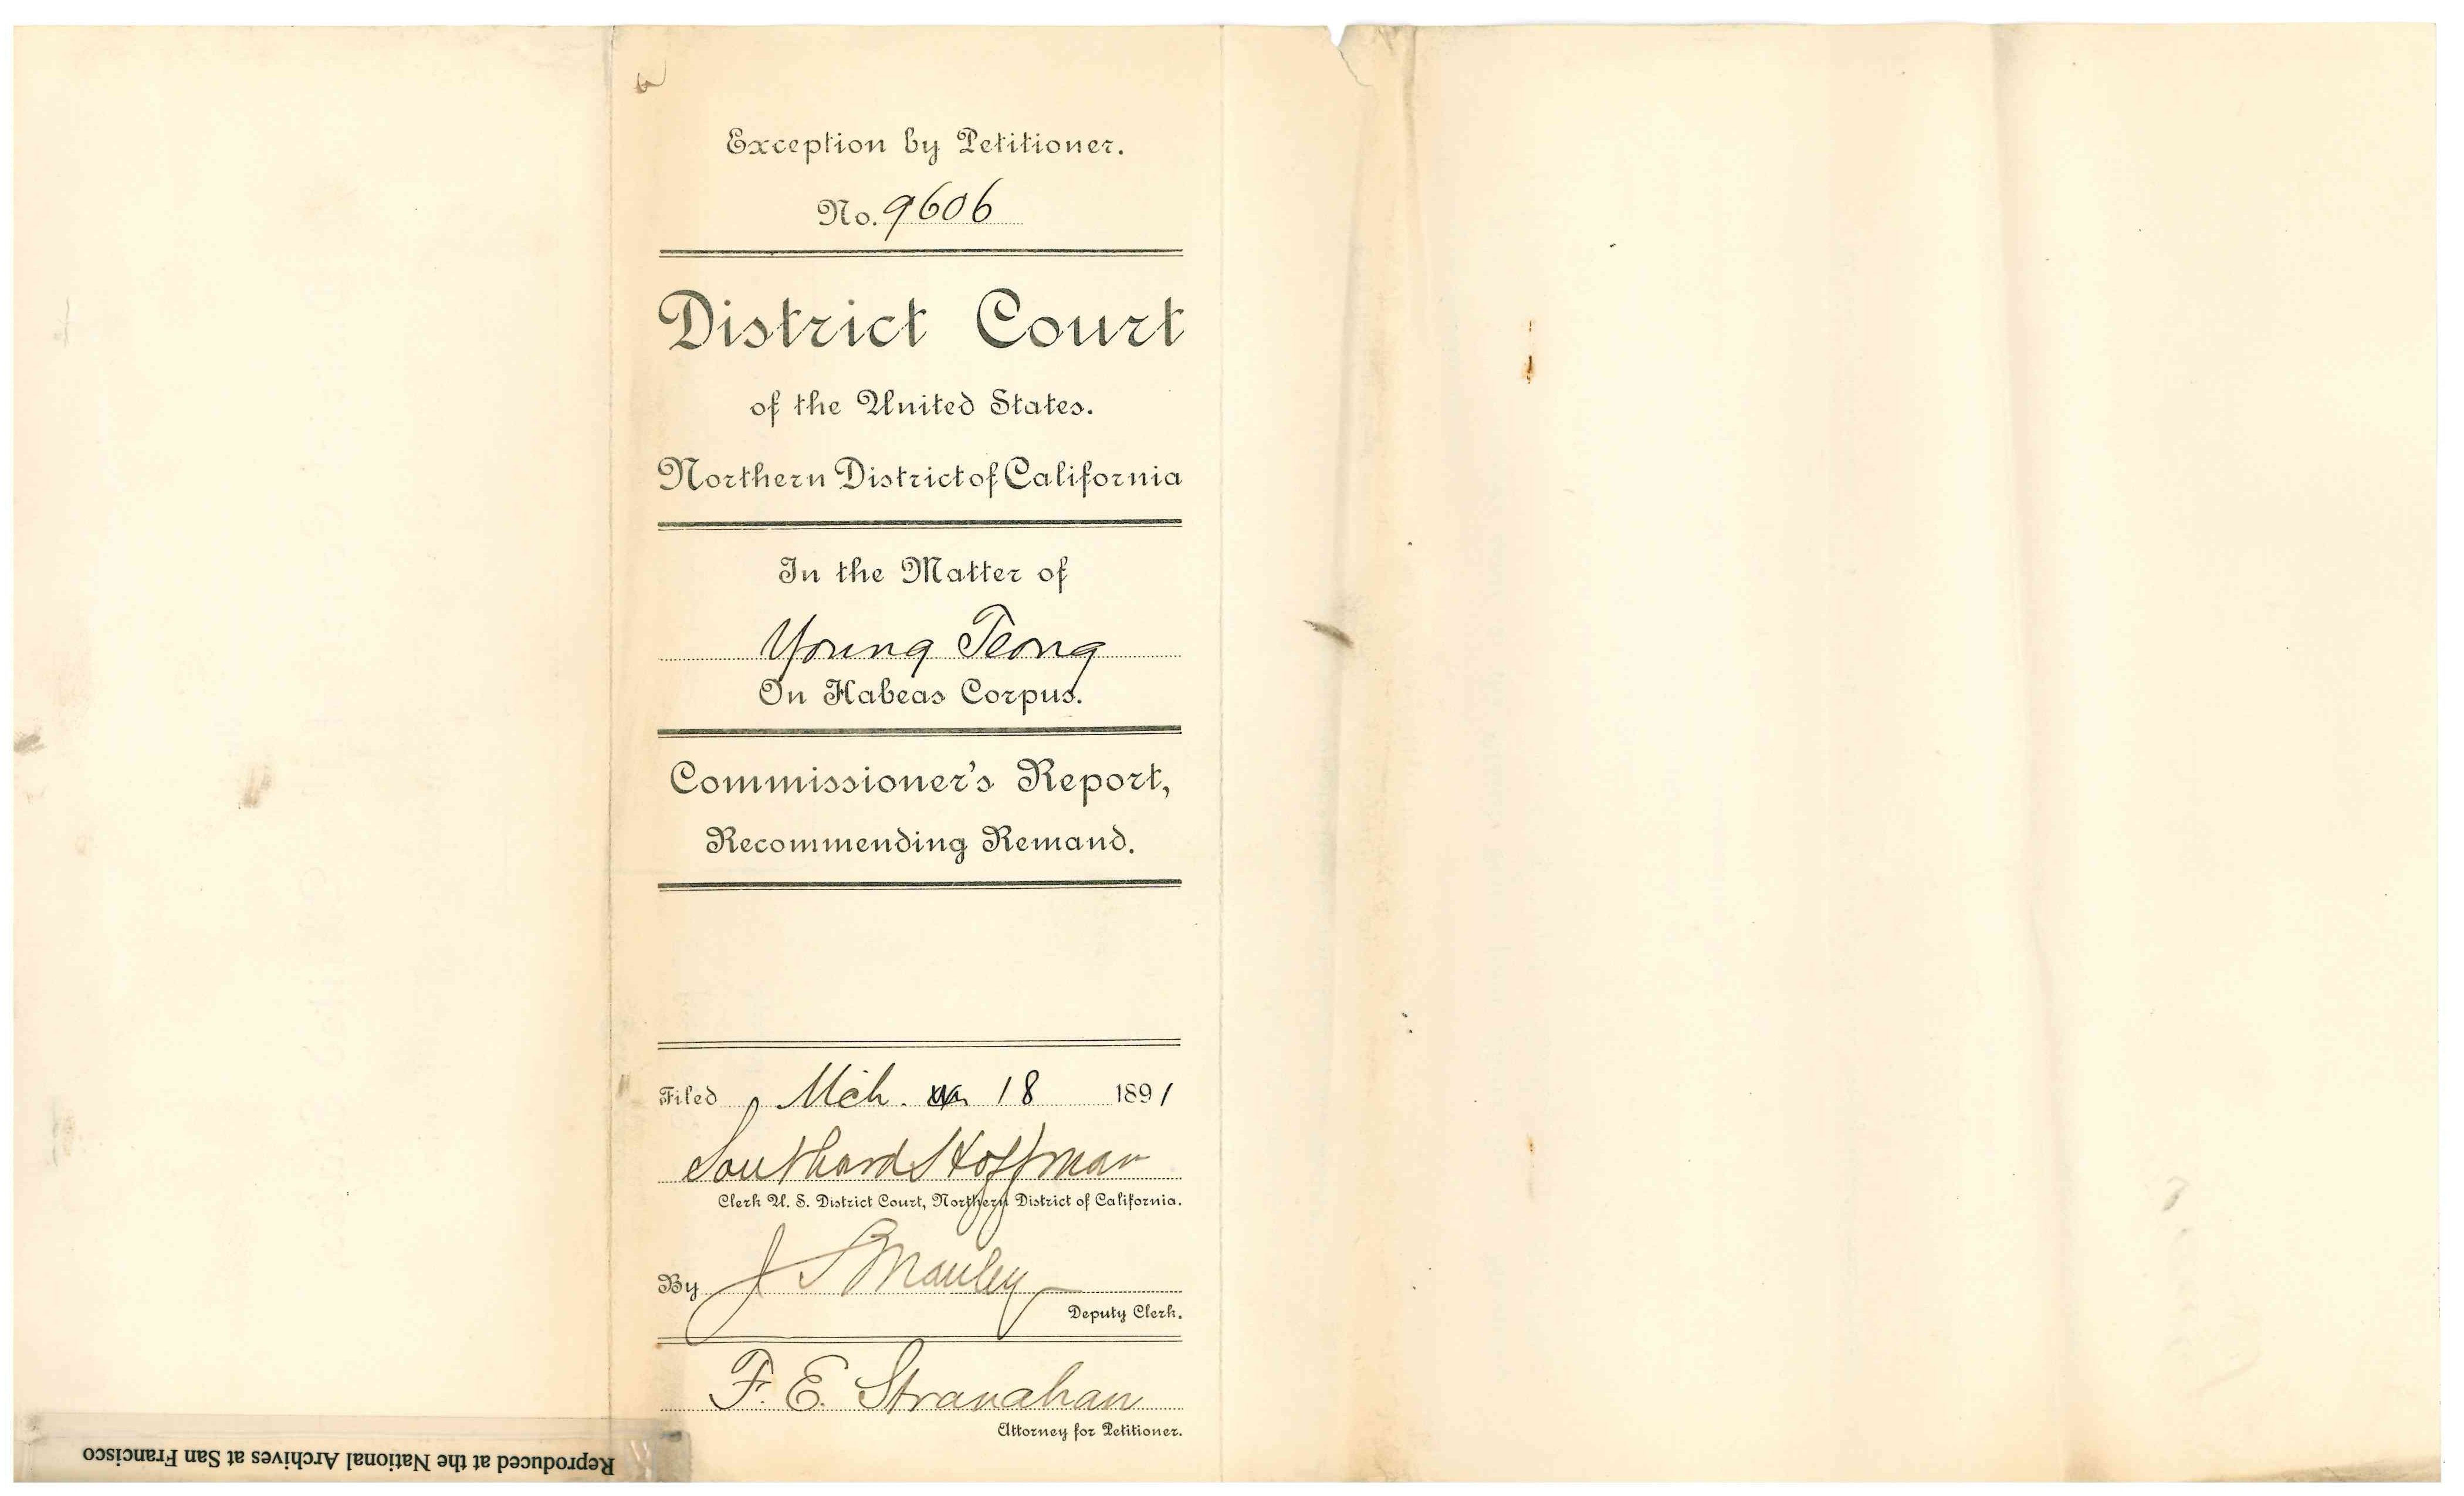 Exception by Petitioner.
No. 9606
District Court
of the United States.
Northern District of California
In the Matter of
Young Teong
On Habeas Corpus.
Commissioner's Report,
Recommending Remand.
Filed Mch. 18 1891
Southard Hoffman
Clerk U. S. District Court, Northern District of California.
By J S Manley
Deputy Clerk.
F. E. Stranahan
Attorney for Petitioner.
Reproduced at the National Archives at San Francisco